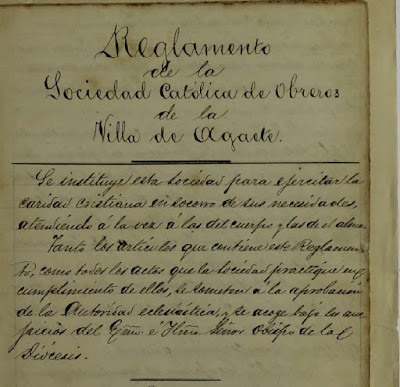 Reglamento
de la
Sociedad Católica de Obreros
de la
Villa de Agaete.
Se instituye esta Sociedad para ejercitar la
caridad cristiana en socorro de sus necesidades,
atendiendo á la vez á las del cuerpo y las de el alma.
Tanto los artículos que contiene este Reglamen-
to, como todos los actos que la Sociedad practique en
cumplimiento de ellos, se someten á la aprobacion
de la Autoridad eclesiástica, y se acoge bajo los aus-
picios del Exmo é Iltmo Señor Obispo de la
Diócesis.